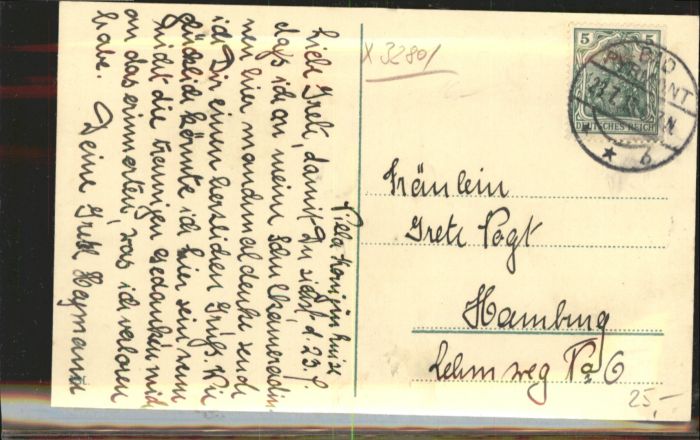 Villa Königin Luise
d. 23. 7.
Liebe Grete, damit Du siehst,
dass ich an meine Schulkameradin-
nen hier manchmal denke, sende
ich Dir einen herzlichen Gruss. Wie
glücklich könnte ich hier sein, wenn
nicht die traurigen Gedanken mich
an das erinnerten, was ich verloren
habe.
Deine Gretel Heymann
X 32801
5 5
BAD
PYRMONT
23.7.
N
* b
DEUTSCHES REICH
Fräulein
Grete Vogt
Hamburg
Lehmweg No 6
25,-